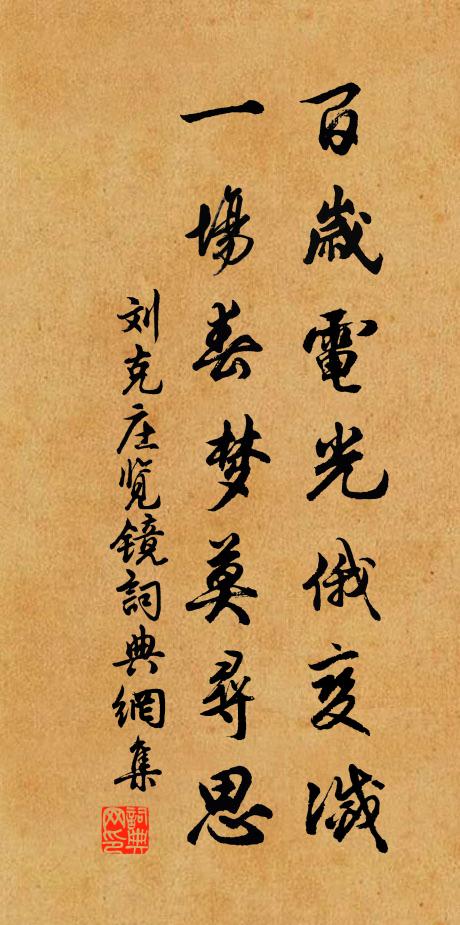 百歲電光俄变滅
一場春梦莫尋思
刘克庄览镜詞典網集
詞典網印